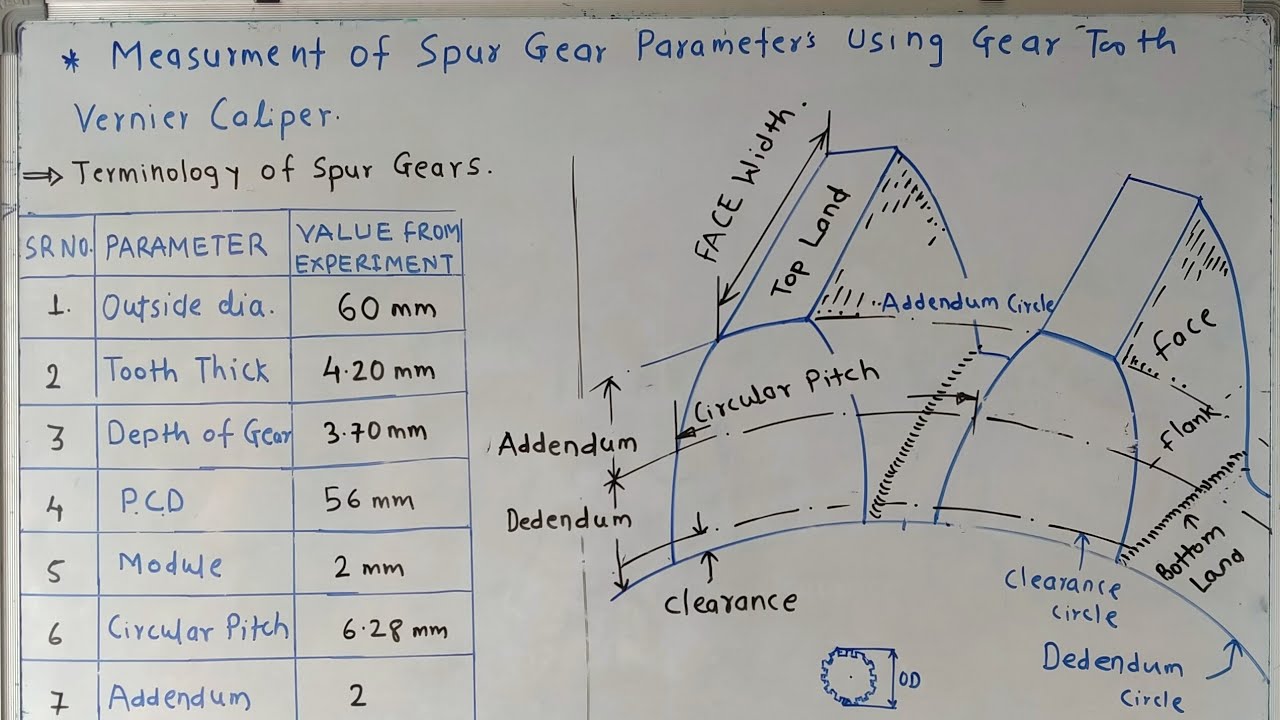 * Measurment of Spur Gear Parameters Using Gear Tooth
Vernier Caliper.
⇒ Terminology of Spur Gears.
SR NO. PARAMETER VALUE FROM EXPERIMENT
1. Outside dia. 60 mm
2 Tooth Thick 4.20 mm
3 Depth of Gear 3.70 mm
4 P.C.D 56 mm
5 Module 2 mm
6 Circular Pitch 6.28 mm
7 Addendum 2
FACE Width.
Top Land
Addendum Circle
face
Circular Pitch
flank
Addendum
Dedendum
Bottom
Land
Clearance
Clearance
circle
OD
Dedendum
circle